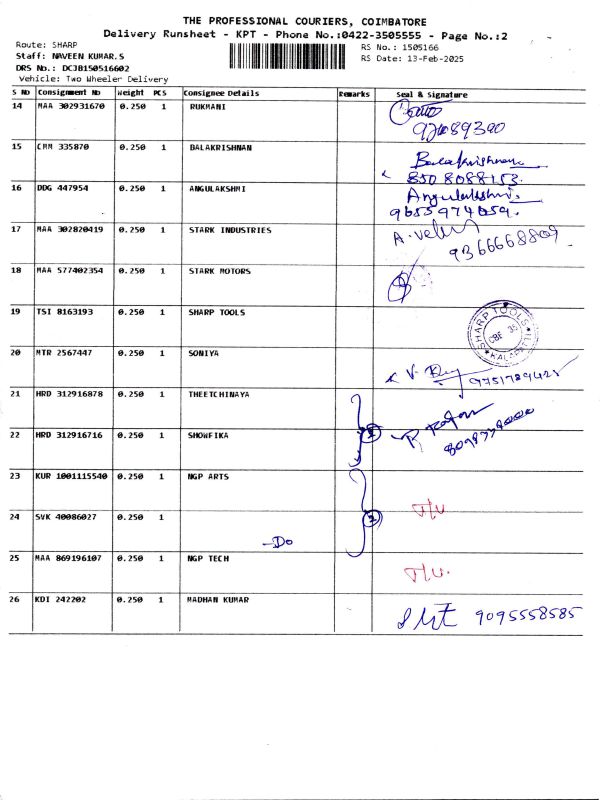 THE PROFESSIONAL COURIERS, COIMBATORE
Delivery Runsheet - KPT - Phone No.:0422-3505555 - Page No.:2
Route: SHARP
Staff: NAVEEN KUMAR.S
DRS No.: DCJB150516602
Vehicle: Two Wheeler Delivery
RS No.: 1505166
RS Date: 13-Feb-2025
S No Consignment No Weight PCS Consignee Details Remarks Seal & Signature
14 MAA 302931670 0.250 1 RUKMANI
15 CMM 335870 0.250 1 BALAKRISHNAN Balakrishnan
8508088153.
16 DDG 447954 0.250 1 ANGULAKSHMI Angulakshmi.
9655974059.
17 MAA 302820419 0.250 1 STARK INDUSTRIES A. Velu
9366668809
18 MAA 577402354 0.250 1 STARK MOTORS
19 TSI 8163193 0.250 1 SHARP TOOLS SHARP TOOLS CBE 35 KALAPATTI
20 MTR 2567447 0.250 1 SONIYA
9751789425
21 HRD 312916878 0.250 1 THEETCHINAYA
22 HRD 312916716 0.250 1 SHOWFIKA 2
23 KUR 1001115540 0.250 1 NGP ARTS T/U
24 SVK 40086027 0.250 1 -Do 2
25 MAA 869196107 0.250 1 NGP TECH T/U.
26 KDI 242202 0.250 1 MADHAN KUMAR 9095558585